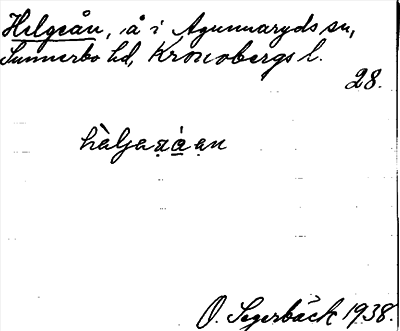 Helgeån, å i Agunnaryds sn,
Sunnerbo hd, Kronobergs l.
28.
hàljaṇá̲ạn
O. Segerbäck 1938.